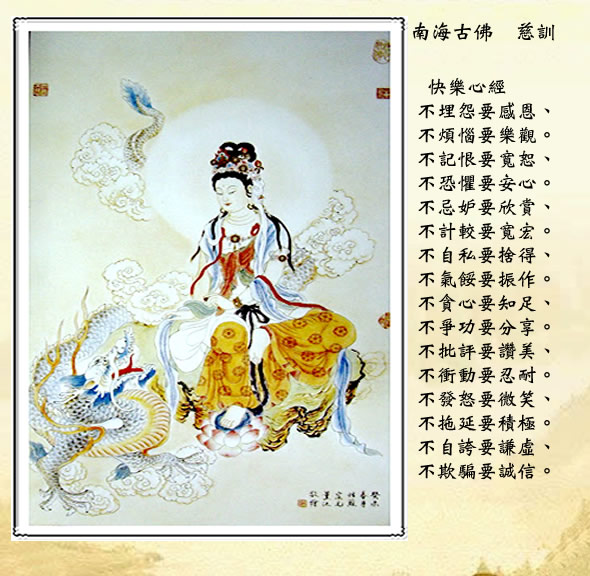 南海古佛　慈訓
快樂心經
不埋怨要感恩、
不煩惱要樂觀。
不記恨要寬恕、
不恐懼要安心。
不忌妒要欣賞、
不計較要寬宏。
不自私要捨得、
不氣餒要振作。
不貪心要知足、
不爭功要分享。
不批評要讚美、
不衝動要忍耐。
不發怒要微笑、
不拖延要積極。
不自誇要謙虛、
不欺騙要誠信。